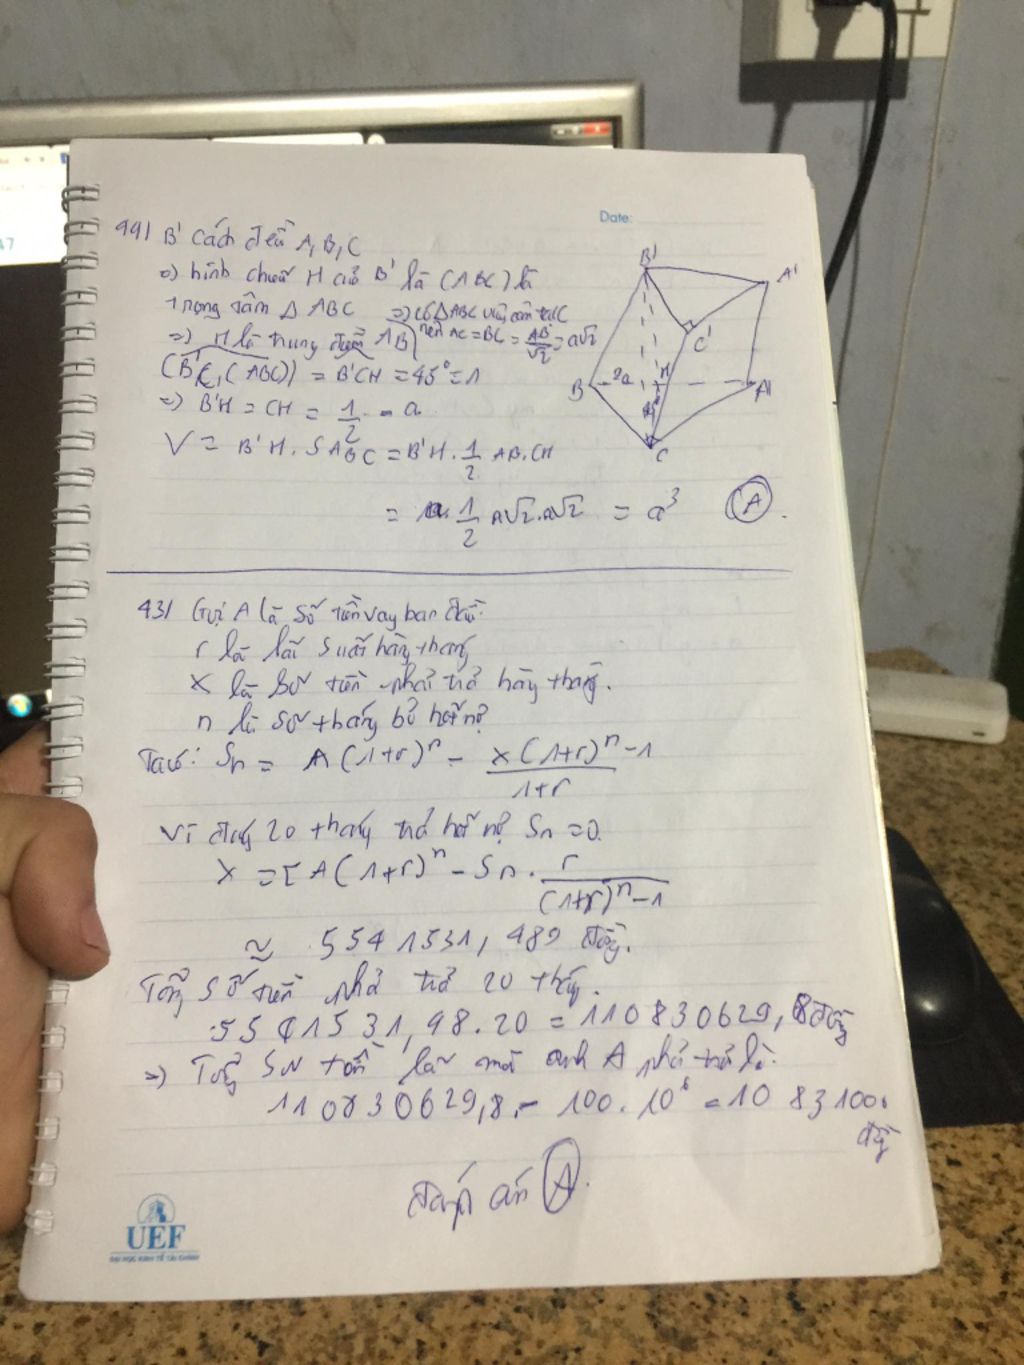 Date:
44) B' cách đều A, B, C
=) hình chiếu H của B' là (ABC) là
trọng tâm Δ ABC =) có ΔABC vuông cân tại C
=) H là trung điểm AB nên AC = BC = AB/√2 = a√2
(B'C, (ABC)) = B'CH = 45° = 1
=) B'H = CH = 1/2 = a
V = B'H . SABC = B'H . 1/2 AB.CH
= a. 1/2 a√2.a√2 = a³ (A)
B'
A'
C'
B 2a H A
C
43) Gọi A là số tiền vay ban đầu
r là lãi suất hàng tháng
x là số tiền phải trả hàng tháng.
n là số tháng trả hết nợ
Ta có: Sn = A(1+r)ⁿ - x(1+r)ⁿ-1 / 1+r
Vì đúng 20 tháng trả hết nợ Sn = 0.
x = [A(1+r)ⁿ - Sn . r / (1+r)ⁿ-1
≈ 5541531,489 đồng.
Tổng số tiền phải trả 20 tháng.
5541531,98.20 = 110830629,8 đồng
=) Tổng số tiền lãi mà anh A phải trả là:
110830629,8 - 100.10⁶ = 10 83100.
đồng
đáp án (A).
UEF
ĐẠI HỌC KINH TẾ TÀI CHÍNH